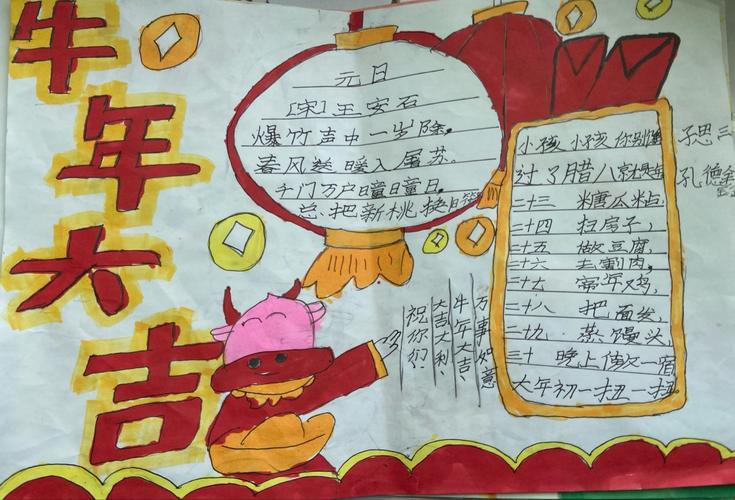 牛年大吉
元日
[宋]王安石
爆竹声中一岁除,
春风送暖入屠苏。
千门万户曈曈日,
总把新桃换旧符
小孩小孩你别馋
过了腊八就是年
二十三 糖瓜粘,
二十四 扫房子,
二十五 做豆腐,
二十六 去割肉,
二十七 宰年鸡,
二十八 把面发,
二十九 蒸馒头,
三十 晚上熬一宿
大年初一扭一扭
祝你们:
大吉大利
牛年大吉、
万事如意
子思三
孔德